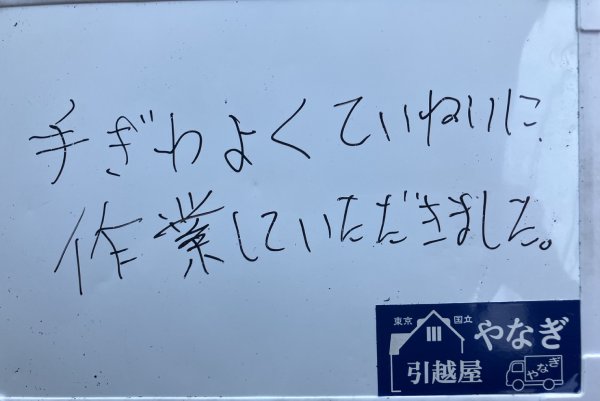 手ぎわよくていねいに
作業していただきました。
東京 国立 やなぎ
引越屋 やなぎ